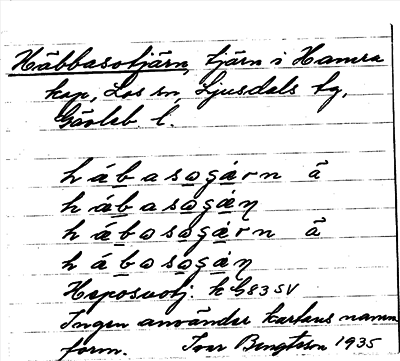 Häbbasotjärn, tjärn i Hamra
kap, Los sn, Ljusdals tg,
Gävleb. l.
hábasogárn ã
hábasogáŋ
hábosogárn ã
hábosogáŋ
k G83SV
Ingen använder kartans namn
form. Ivar Bengtsson 1935